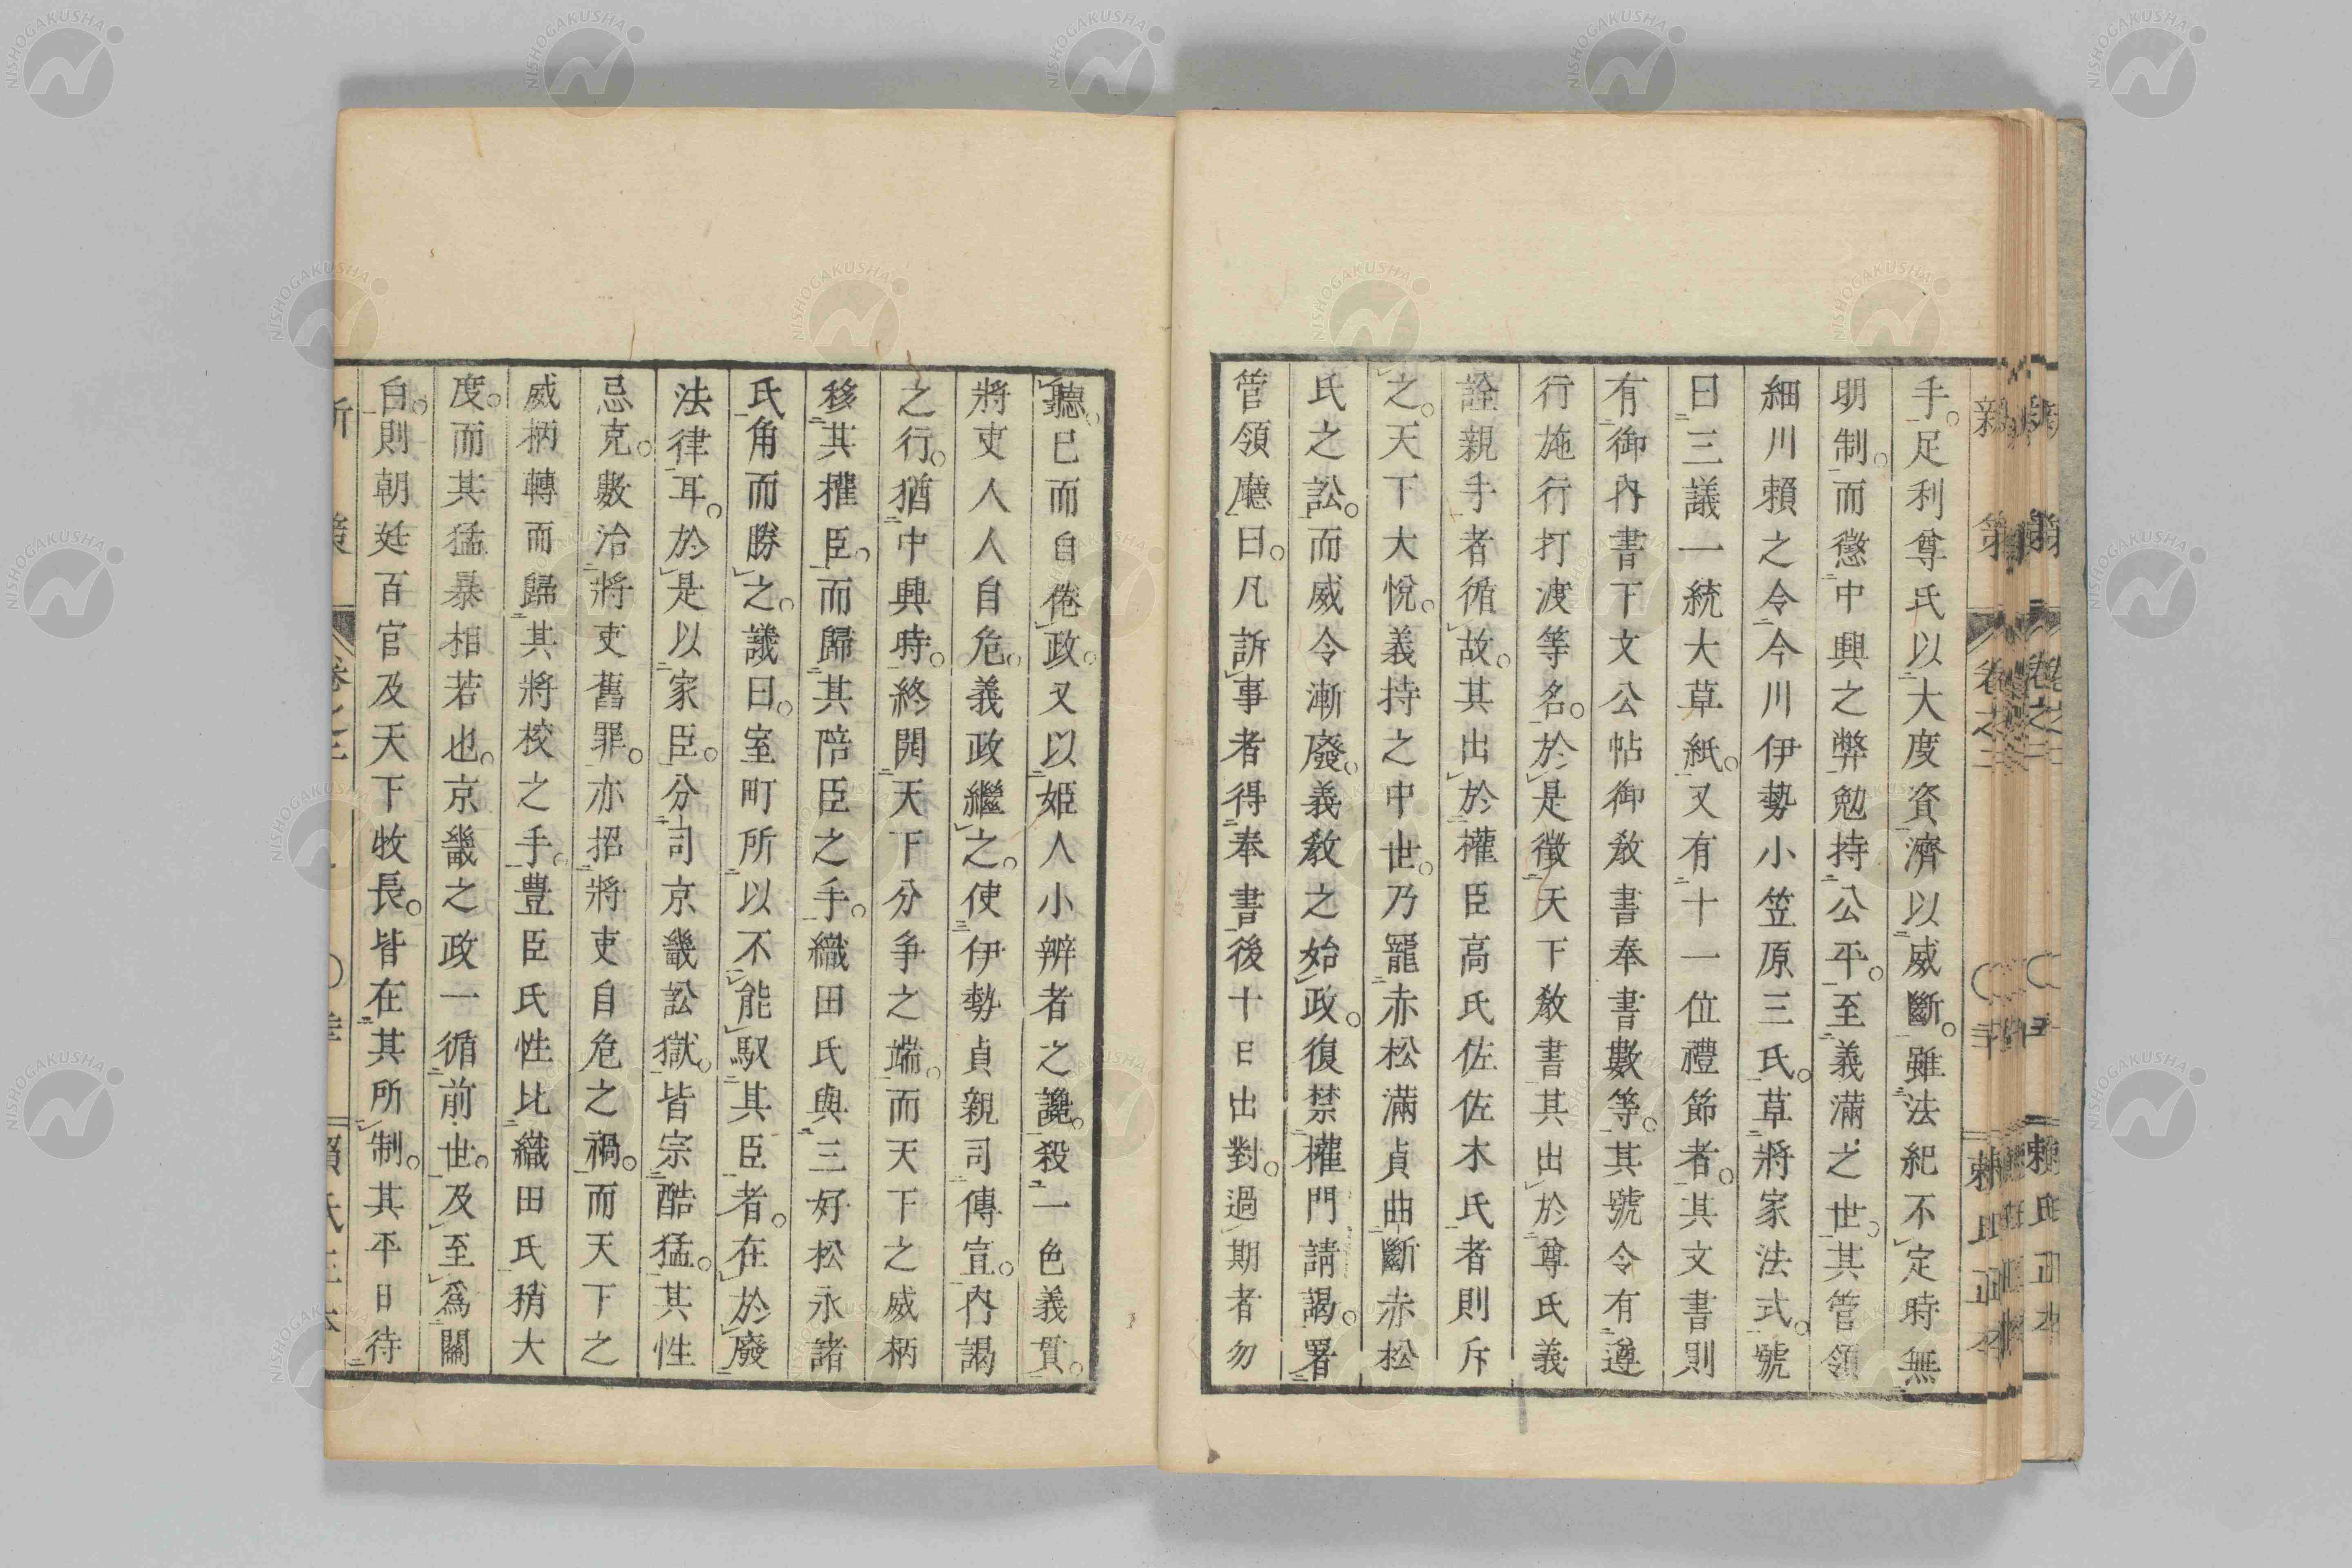 手。足利尊氏以大度資濟以威斷。雖法紀不定時無
明制。而懲中興之弊勉持公平。至義滿之世。其管領
細川頼之令今川伊勢小笠原三氏。草將家法式。號
曰三議一統大草紙。又有十一位禮節者。其文書則
有御內書下文公帖御敎書奉書數等。其號令有遵
行施行打渡等名。於是徵天下敎書其出於尊氏義
詮親手者循故。其出於權臣高氏佐佐木氏者則斥
之。天下大悅。義持之中世。乃寵赤松滿貞曲斷赤松
氏之訟。而威令漸廢。義敎之始政。復禁權門請謁。署
管領廳曰。凡訴事者得奉書後十日出對。過期者勿
聽。已而自倦政。又以姬人小辨者之讒。殺一色義貫。
將吏人人自危。義政繼之。使伊勢貞親司傳宣。內謁
之行。猶中興時。終開天下分爭之端。而天下之威柄
移其權臣。而歸其陪臣之手。織田氏與三好松永諸
氏角而勝之。議曰。室町所以不能馭其臣者。在於廢
法律耳。於是以家臣。分司京畿訟獄。皆宗酷猛。其性
忌克。數治將吏舊罪。亦招將吏自危之禍。而天下之
威柄轉而歸其將校之手。豐臣氏性比織田氏稍大
度。而其猛暴相若也。京畿之政一循前世。及至爲關
白。則朝廷百官及天下牧長。皆在其所制。其平日待
NISHOGAKUSHA